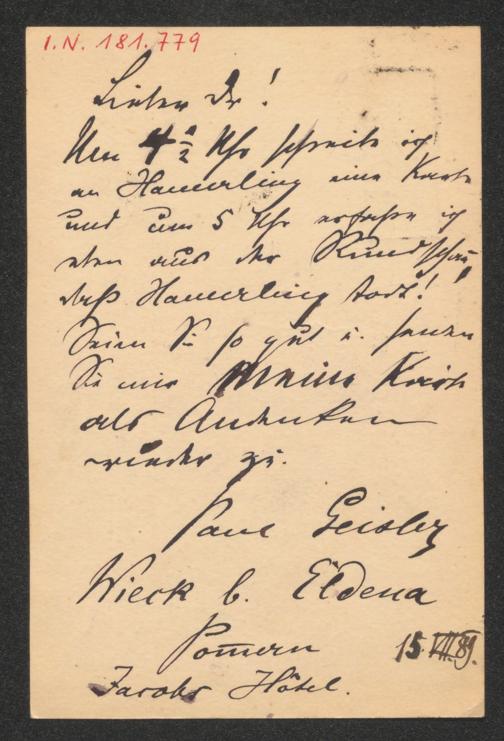 I.N. 181.779
Lieber Dr!
Um 4 1/2 Uhr schreibe ich
an Hamerling eine Karte
und um 5 Uhr erfahre ich
eben aus der Rundschau,
daß Hamerling todt!
Seien Sie so gut u. senden
Sie mir meine Karte
als Andenken
wieder zu.
Paul Geisler
Wieck b. Eldena
Pommern 15.VII.89.
Jacobs Hôtel.